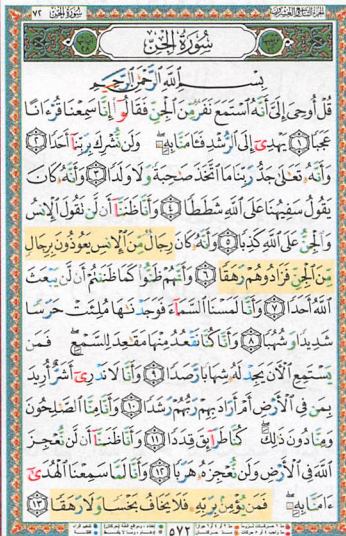 سُورَةُ الْجِنِّ ٧٢
الجزء التاسع والعشرون
سُورَةُ الْجِنِّ
بِسْمِ اللَّهِ الرَّحْمَٰنِ الرَّحِيمِ
قُلْ أُوحِيَ إِلَيَّ أَنَّهُ اسْتَمَعَ نَفَرٌ مِّنَ الْجِنِّ فَقَالُوا إِنَّا سَمِعْنَا قُرْءَانًا
عَجَبًا ١ يَهْدِي إِلَى الرُّشْدِ فَـَٔامَنَّا بِهِ وَلَن نُّشْرِكَ بِرَبِّنَا أَحَدًا ٢
وَأَنَّهُ تَعَٰلَىٰ جَدُّ رَبِّنَا مَا اتَّخَذَ صَٰحِبَةً وَلَا وَلَدًا ٣ وَأَنَّهُ كَانَ
يَقُولُ سَفِيهُنَا عَلَى اللَّهِ شَطَطًا ٤ وَأَنَّا ظَنَنَّا أَن لَّن تَقُولَ الْإِنسُ
وَالْجِنُّ عَلَى اللَّهِ كَذِبًا ٥ وَأَنَّهُ كَانَ رِجَالٌ مِّنَ الْإِنسِ يَعُوذُونَ بِرِجَالٍ
مِّنَ الْجِنِّ فَزَادُوهُمْ رَهَقًا ٦ وَأَنَّهُمْ ظَنُّوا كَمَا ظَنَنتُمْ أَن لَّن يَبْعَثَ
اللَّهُ أَحَدًا ٧ وَأَنَّا لَمَسْنَا السَّمَاءَ فَوَجَدْنَٰهَا مُلِئَتْ حَرَسًا
شَدِيدًا وَشُهُبًا ٨ وَأَنَّا كُنَّا نَقْعُدُ مِنْهَا مَقَٰعِدَ لِلسَّمْعِ فَمَن
يَسْتَمِعِ الْآنَ يَجِدْ لَهُ شِهَابًا رَّصَدًا ٩ وَأَنَّا لَا نَدْرِي أَشَرٌّ أُرِيدَ
بِمَن فِي الْأَرْضِ أَمْ أَرَادَ بِهِمْ رَبُّهُمْ رَشَدًا ١٠ وَأَنَّا مِنَّا الصَّٰلِحُونَ
وَمِنَّا دُونَ ذَٰلِكَ كُنَّا طَرَائِقَ قِدَدًا ١١ وَأَنَّا ظَنَنَّا أَن لَّن نُّعْجِزَ
اللَّهَ فِي الْأَرْضِ وَلَن نُّعْجِزَهُ هَرَبًا ١٢ وَأَنَّا لَمَّا سَمِعْنَا الْهُدَىٰ
ءَامَنَّا بِهِ فَمَن يُؤْمِن بِرَبِّهِ فَلَا يَخَافُ بَخْسًا وَلَا رَهَقًا ١٣
٥٧٢